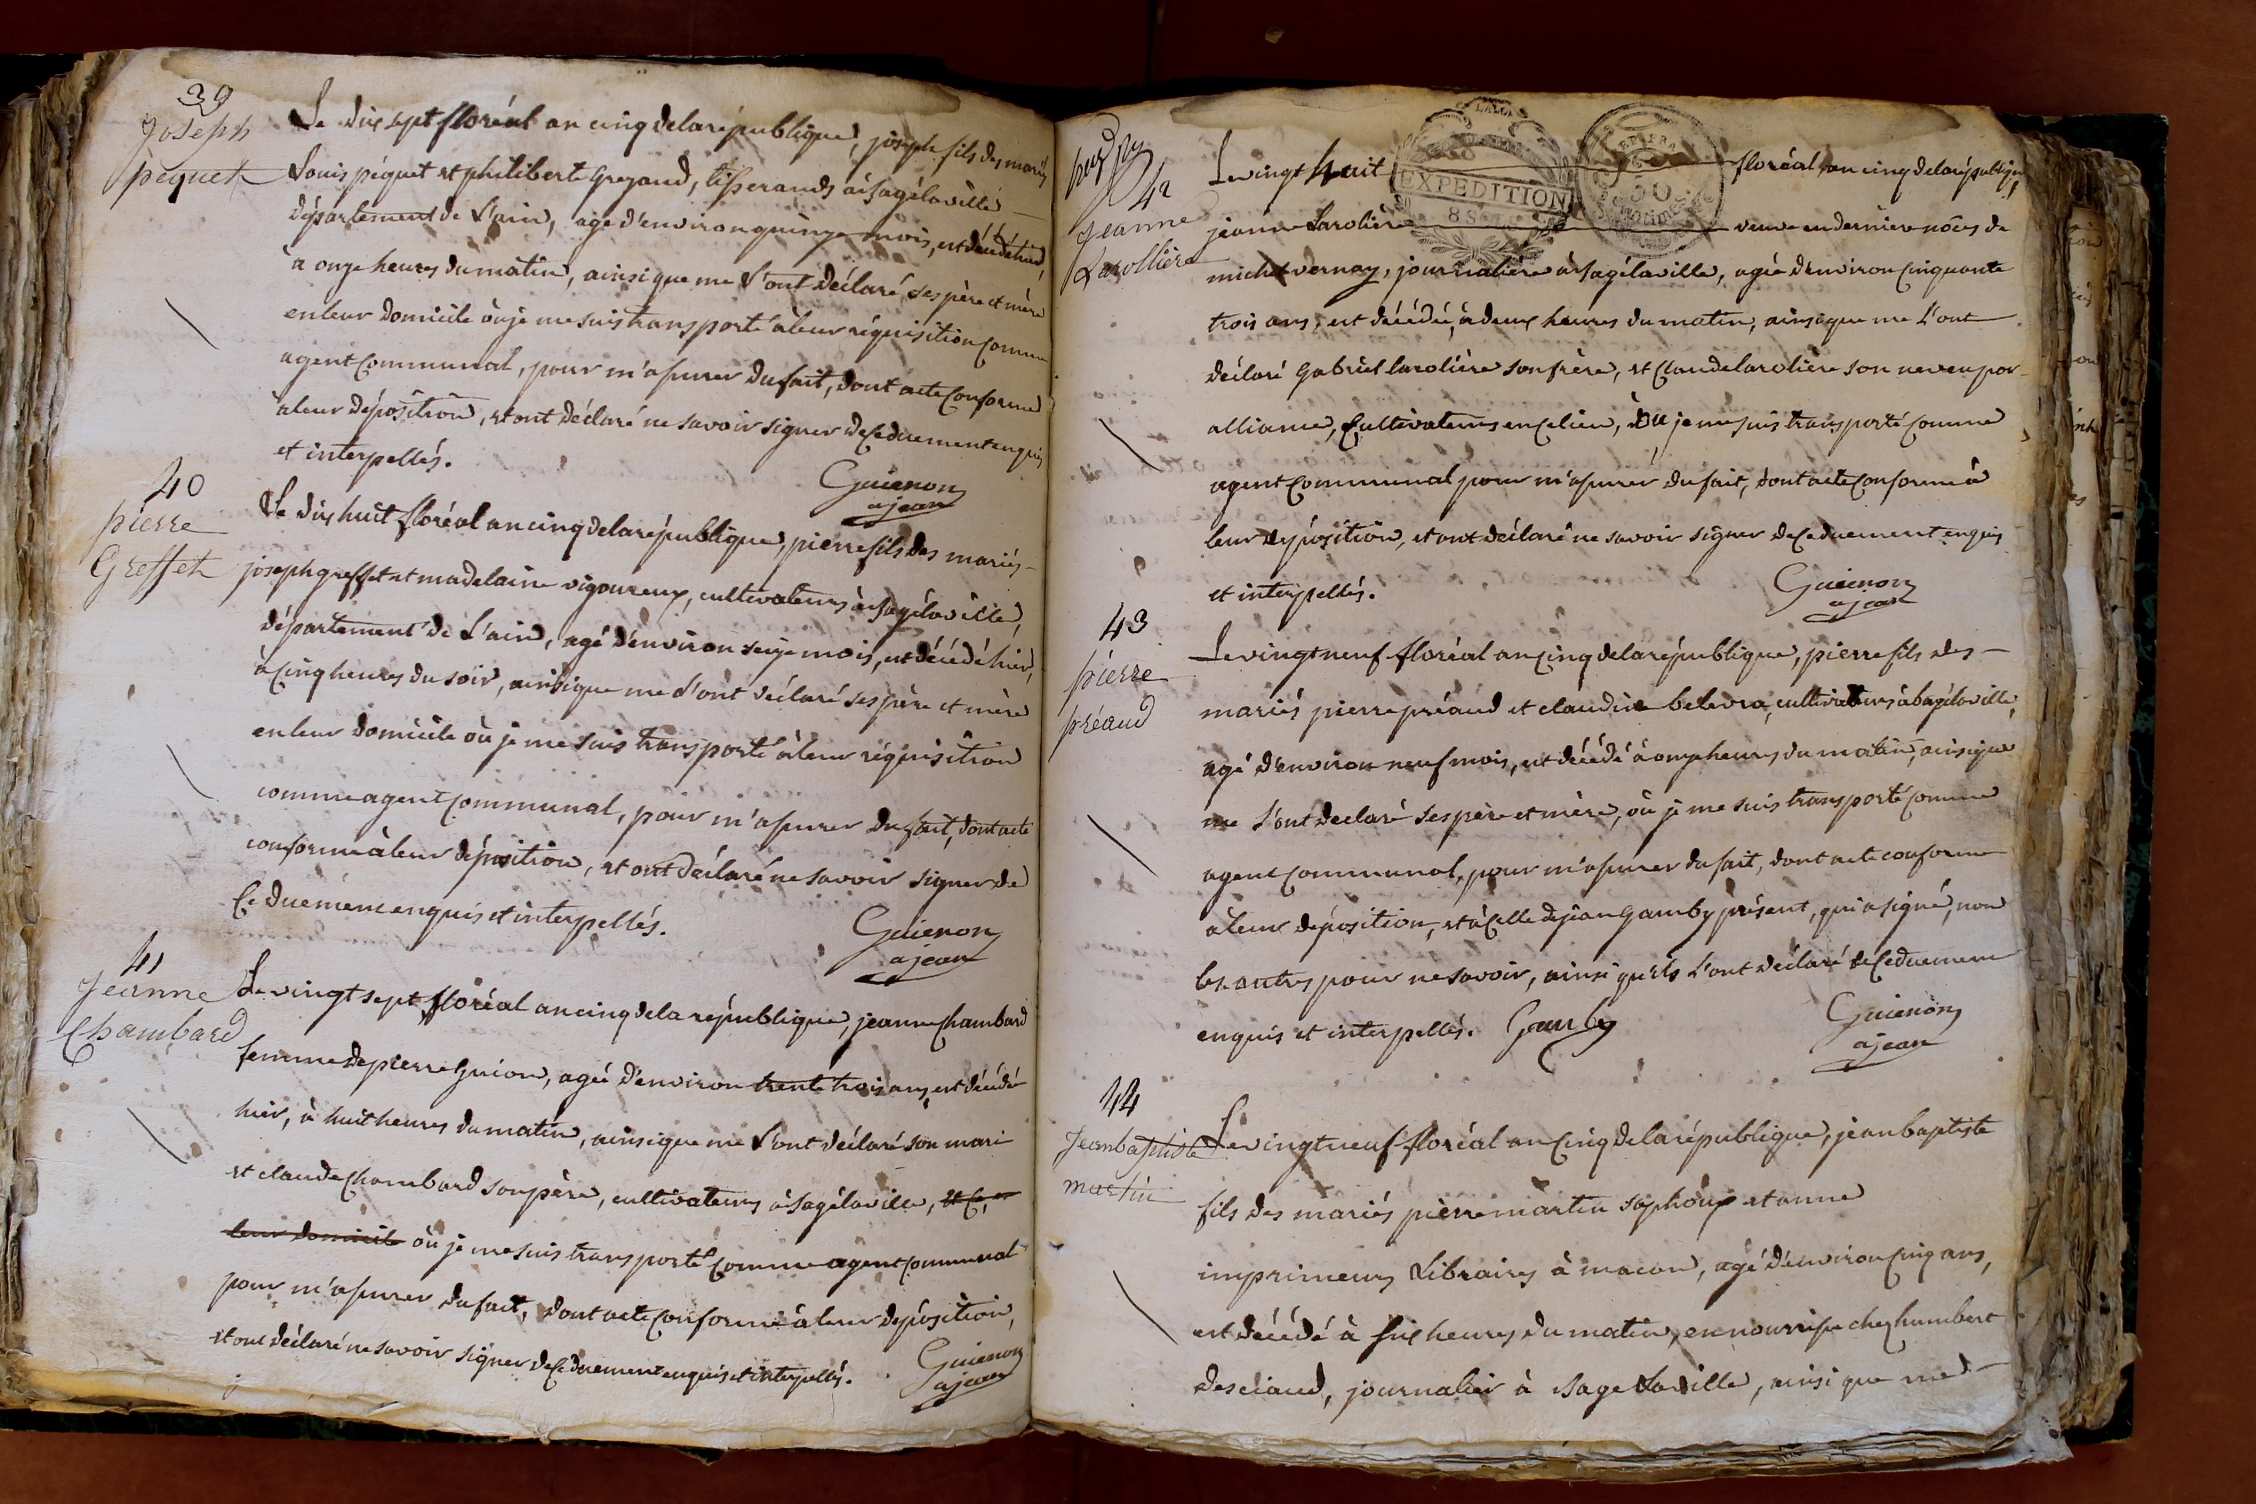 39
Joseph
pequet
Le dix sept floréal an cinq de la république, joseph fils des mariés
Louis péquet et philiberte Greyaud, tisserands à Bagé la ville
département de L'ain, agé d'environ quinze mois, est décédé hier,
à onze heures du matin, ainsi que me l'ont déclaré ses père et mère
en leur domicile où je me suis transporté à leur réquisition comme
agent communal, pour m'assurer du fait, dont acte conforme
à leur déposition, et ont déclaré ne savoir signer de ce duement enquis
et interpellés.
Guienon
ajean
40
pierre
Greffet
Le dix huit floréal an cinq de la république, pierre fils des mariés
joseph greffet et madelaine vigoureux, cultivateurs à Bagé la ville,
département de L'ain, agé d'environ seize mois, est décédé hier,
à cinq heures du soir, ainsi que me l'ont déclaré ses père et mère
en leur domicile où je me suis transporté à leur réquisition
comme agent communal, pour m'assurer du fait, dont acte
conforme à leur déposition, et ont déclaré ne savoir signer de
ce duement enquis et interpellés.
Guienon
ajean
41
Jeanne
Chambard
Le vingt sept floréal an cinq de la république, jeanne chambard
femme de pierre guion, agée d'environ trente trois ans, est décédée
hier, à huit heures du matin, ainsi que me l'ont déclaré son mari
et claude chambard son père, cultivateurs à Bagé la ville, et ce, en
leur domicile où je me suis transporté comme agent communal
pour m'assurer du fait, dont acte conforme à leur déposition,
et ont déclaré ne savoir signer de ce duement enquis et interpellés.
Guienon
ajean
42
Jeanne
Larollière
EXPEDITION
Le vingt huit floréal an cinq de la république,
jeanne Larolière veuve en dernière nôces de
michel vernay, journalière à Bagé la ville, agée d'environ cinquante
trois ans, est décédée, à deux heures du matin, ainsi que me l'ont
déclaré gabriel larolière son frère, et claude larolière son neveu par
alliance, cultivateurs en ce lieu, où je me suis transporté comme
agent communal pour m'assurer du fait, dont acte conforme à
leur déposition, et ont déclaré ne savoir signer de ce duement enquis
et interpellés.
Guienon
ajean
43
pierre
préaud
Le vingt neuf floréal an cinq de la république, pierre fils des
mariés pierre préaud et claudine belevra, cultivateurs à bagé la ville,
agé d'environ neuf mois, est décédé à onze heures du matin, ainsi que
me l'ont déclaré ses père et mère, où je me suis transporté comme
agent communal, pour m'assurer du fait, dont acte conforme
à leur déposition, et à celle de jean Gamby présent, qui a signé, non
les autres pour ne savoir, ainsi qu'ils l'ont déclaré de ce duement
enquis et interpellés. Gamby
Guienon
ajean
44
Jean baptiste
martin
Le vingt neuf floréal an cinq de la république, jean baptiste
fils des mariés pierre martin saphoux et anne
imprimeurs Libraires à macon, agé d'environ cinq ans,
est décédé à six heures du matin, en nourrisse chez humbert
desciaud, journalier à Bagé La ville, ainsi que me